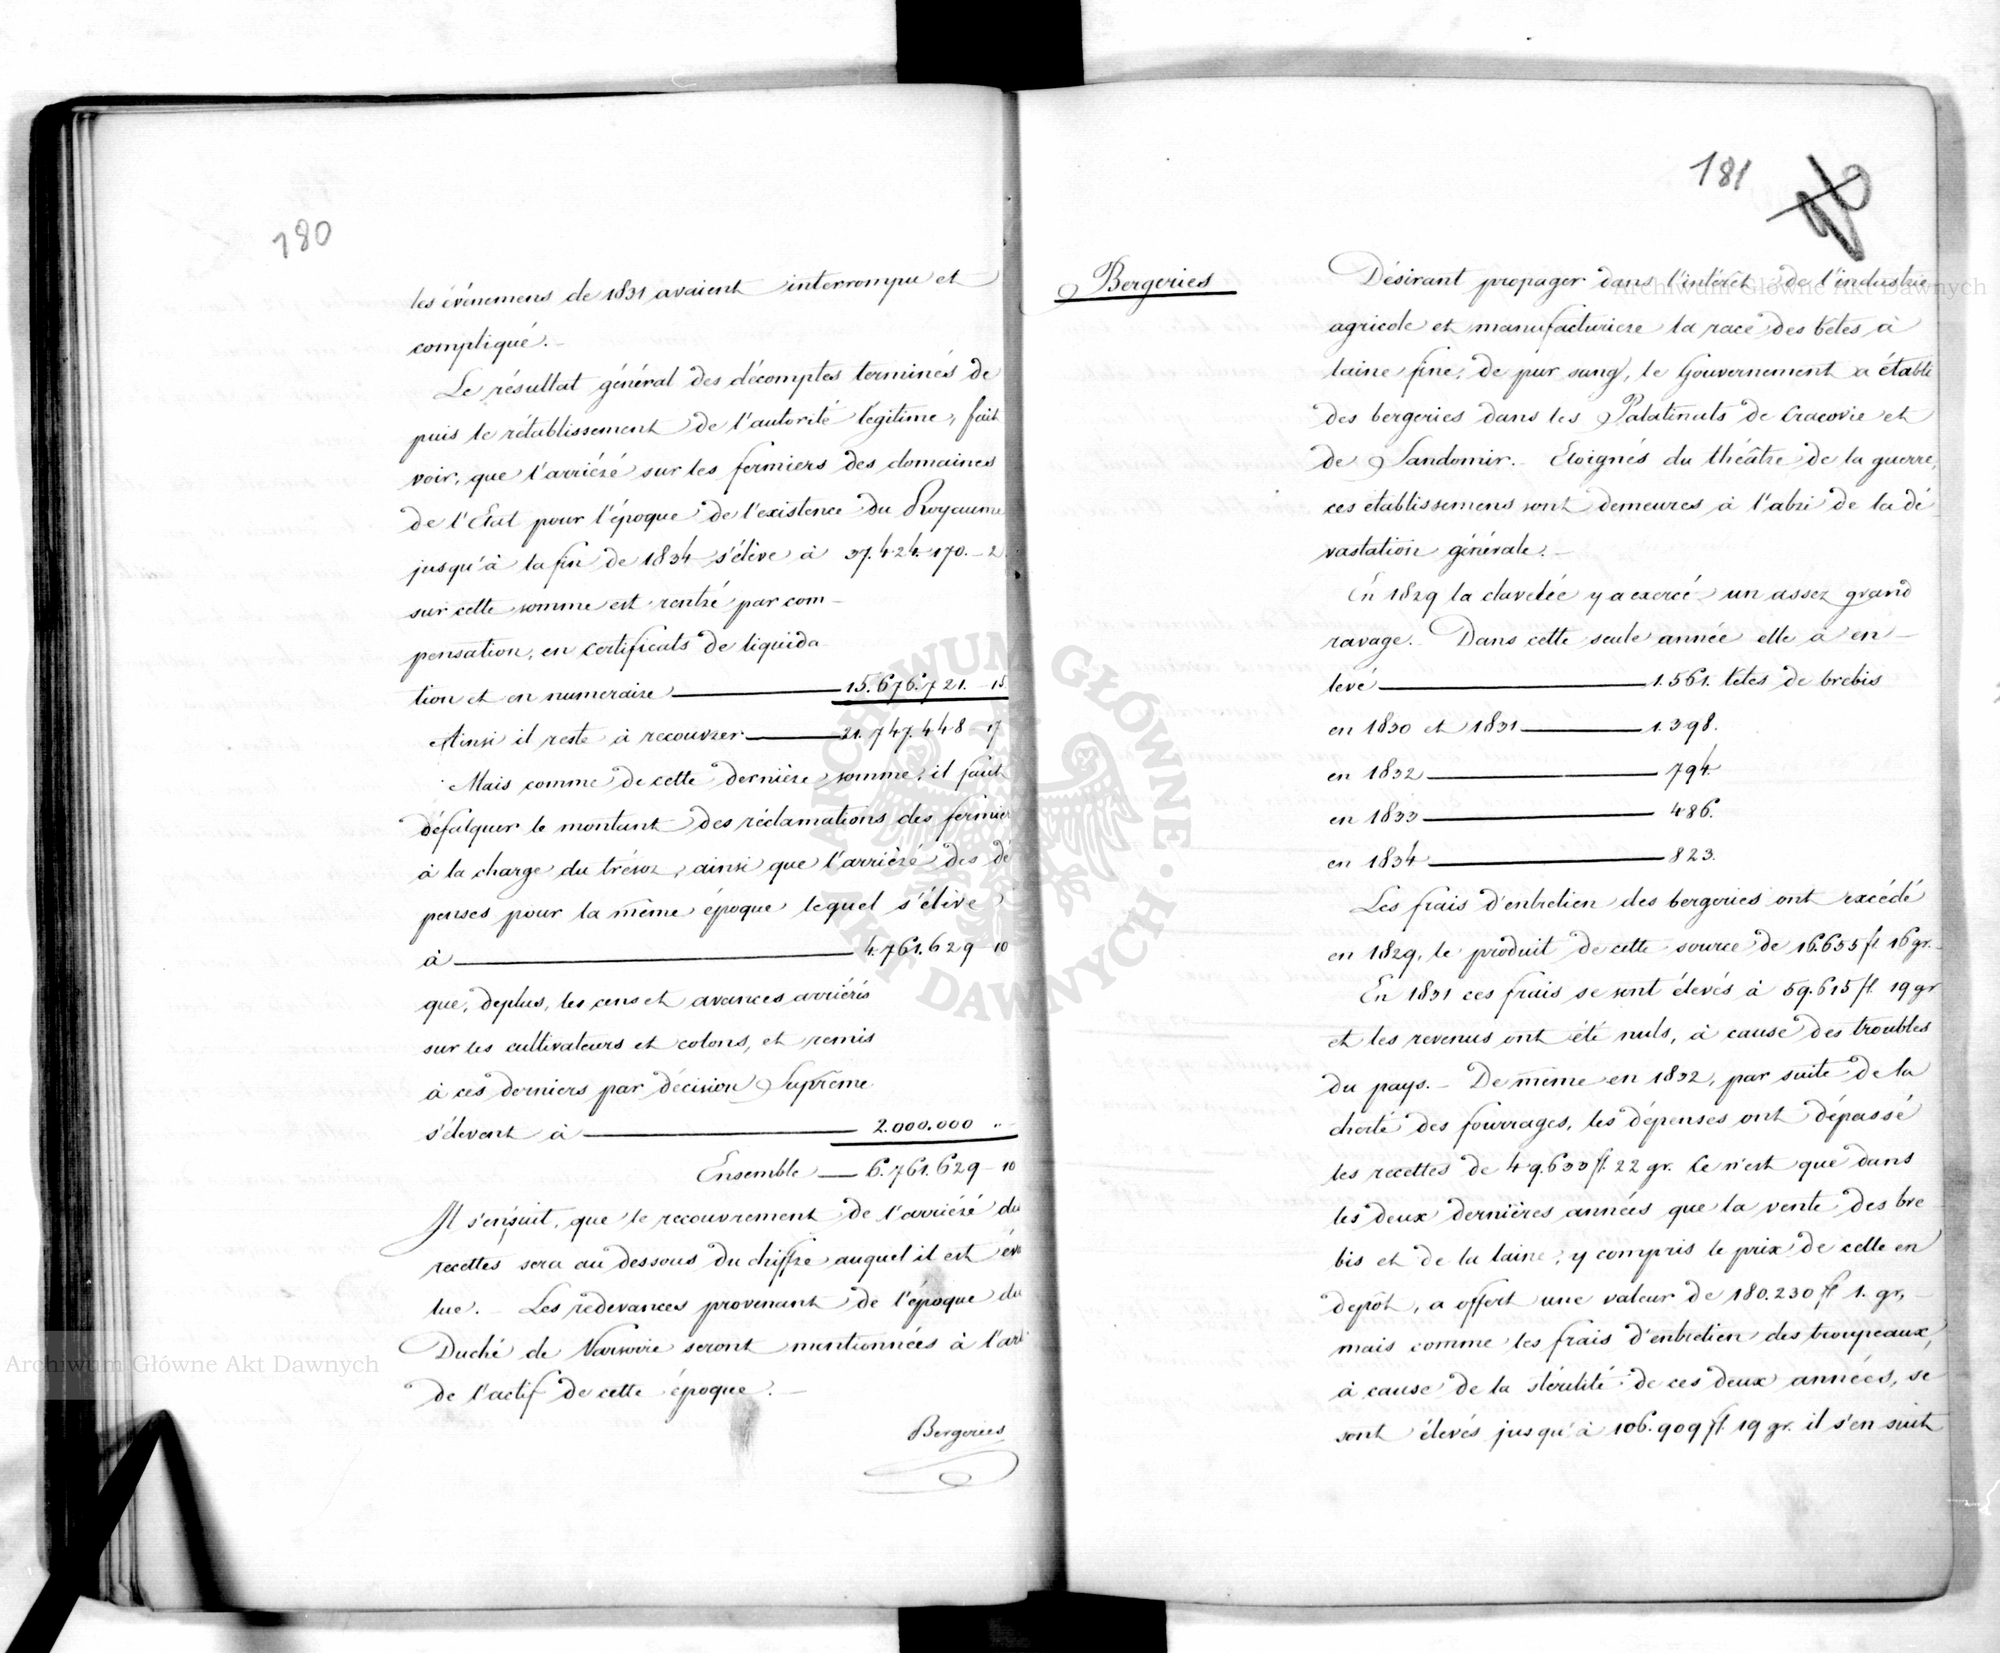 180
les événemens de 1831 avaient interrompu et
compliqué.
Le résultat général des décomptes terminés de
puis le rétablissement de l'autorité légitime, fait
voir, que l'arriéré sur les fermiers des domaines
de l'Etat pour l'époque de l'existence du Royaume
jusqu'à la fin de 1834 s'élève à 37.424.170.-2
sur cette somme est rentré par com-
pensation, en certificats de liquida
tion et en numeraire 15.676.721.-15
Ainsi il reste à recouvrer 21.747.448-17
Mais comme de cette dernière somme, il faut
défalquer le montant des réclamations des fermier
à la charge du trésor, ainsi que l'arriéré des dé
penses pour la même époque lequel s'élève
à 4.761.629-10
que, deplus, les cens et avances arriérés
sur les cultivateurs et colons, et remis
à ces derniers par décision Suprême
s'élevent à 2.000.000 "-
Ensemble 6.761.629-10
Il s'ensuit, que le recouvrement de l'arriéré des
recettes sera au dessous du chiffre auquel il est éva
lué. - Les redevances provenant de l'époque du
Duché de Varsovie seront mentionnées à l'art
de l'actif de cette époque. -
Bergeries
181
Bergeries
Désirant propager dans l'intérêt de l'industrie
agricole et manufacturiere la race des bêtes à
laine fine, de pur sang, le Gouvernement a établi
des bergeries dans les Palatinats de Cracovie et
de Sandomir. Eloignés du théâtre de la guerre,
ces établissemens sont demeurés à l'abri de la dé
vastation générale. -
En 1829 la clavelée y a exercé un assez grand
ravage. Dans cette seule année elle a en-
levé 1.561. têtes de brebis
en 1830 et 1831 1.398.
en 1832 794
en 1833 486.
en 1834 823.
Les frais d'entretien des bergeries ont excédé
en 1829, le produit de cette source de 16.653 fl 16 gr.
En 1831 ces frais se sont élevés à 59.615 fl. 19 gr
et les revenus ont été nuls, à cause des troubles
du pays. - De même en 1832, par suite de la
cherté des fourrages, les dépenses ont dépassé
les recettes de 49.633 fl. 22 gr. Ce n'est que dans
les deux dernières années que la vente des bre
bis et de la laine, y compris le prix de celle en
depôt, a offert une valeur de 180.230 fl 1. gr,-
mais comme les frais d'entretien des troupeaux,
à cause de la stérilité de ces deux années, se
sont élevés jusqu'à 106.909 fl. 19 gr. il s'en suit
Archiwum Główne Akt Dawnych
ARCHIWUM GŁÓWNE · AKT DAWNYCH ·
Archiwum Główne Akt Dawnych